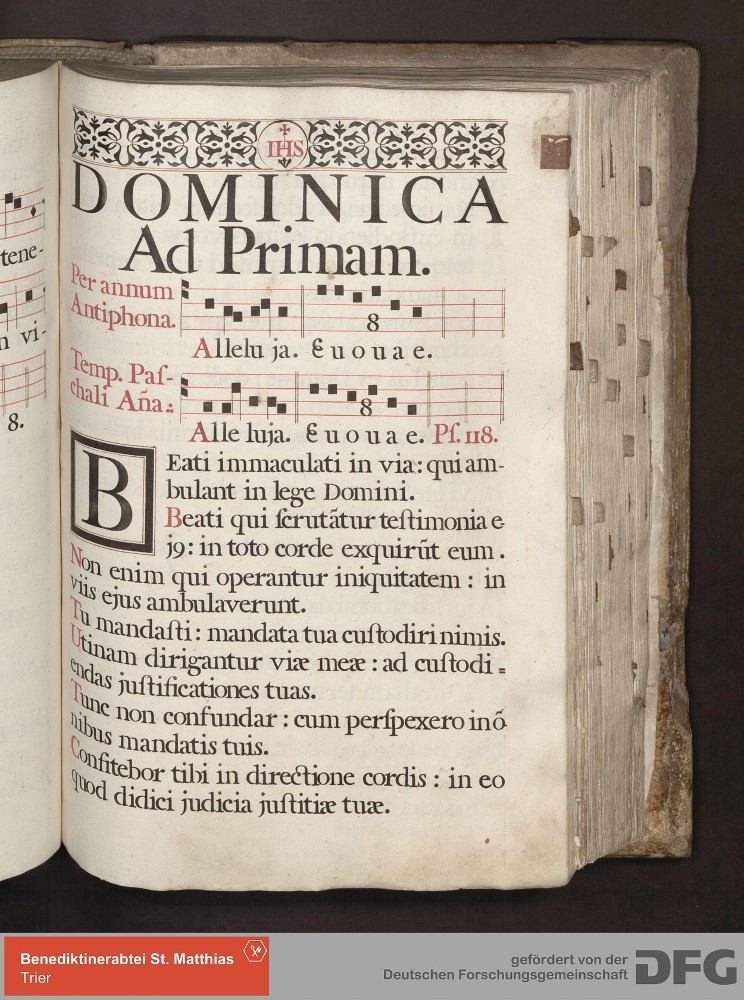 tene-
n vi-
8.
IHS
DOMINICA
Ad Primam.
Per annum
Antiphona.
8
Allelu ja. Euouae.
Temp. Paſ-
chali Aña.:
8
Alle luja. Euouae. Pſ. 118.
BEati immaculati in via: qui am-
bulant in lege Domini.
Beati qui ſcrutãtur teſtimonia e-
j9: in toto corde exquirũt eum.
Non enim qui operantur iniquitatem: in
viis ejus ambulaverunt.
Tu mandaſti: mandata tua cuſtodiri nimis.
Utinam dirigantur viæ meæ: ad cuſtodi=
endas juſtificationes tuas.
Tunc non confundar: cum perſpexero in õ
nibus mandatis tuis.
Confitebor tibi in directione cordis: in eo
quod didici judicia juſtitiæ tuæ.
Benediktinerabtei St. Matthias
Trier
gefördert von der
Deutschen Forschungsgemeinschaft
DFG